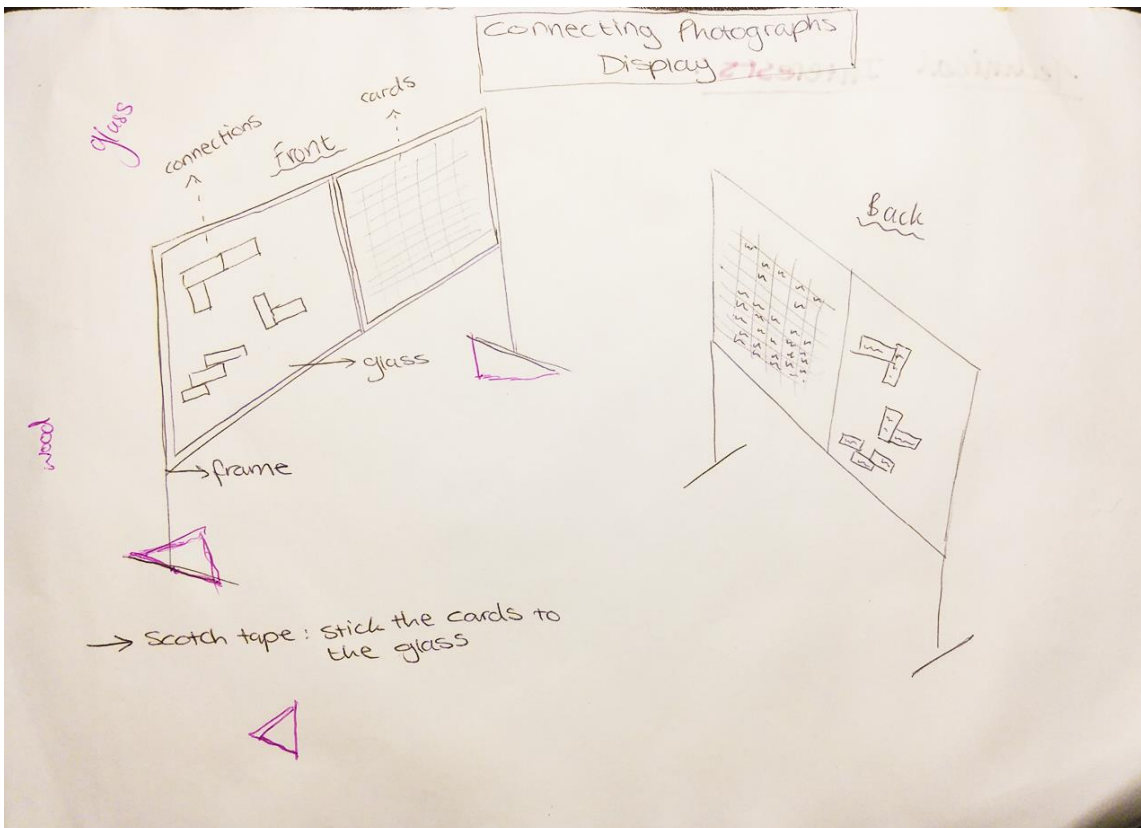 Connecting Photographs
Display
glass
connections
Front
cards
Back
glass
wood
frame
→ Scotch tape : stick the cards to
the glass